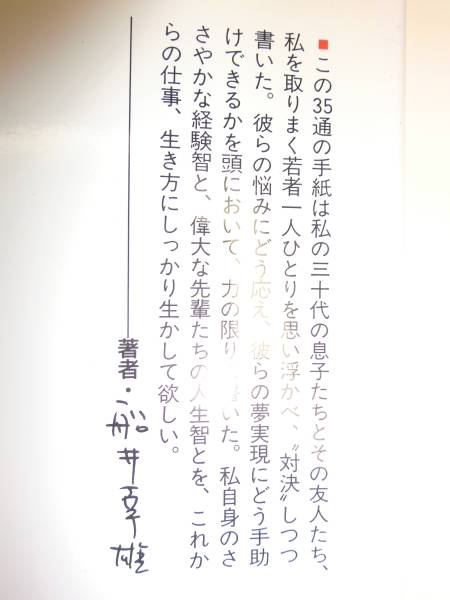 ■この35通の手紙は私の三十代の息子たちとその友人たち、
私を取りまく若者一人ひとりを思い浮かべ、〝対決〟しつつ
書いた。彼らの悩みにどう応え、彼らの夢実現にどう手助
けできるかを頭において、力の限り書いた。私自身のさ
さやかな経験智と、偉大な先輩たちの人生智とを、これか
らの仕事、生き方にしっかり生かして欲しい。
著者・船井幸雄